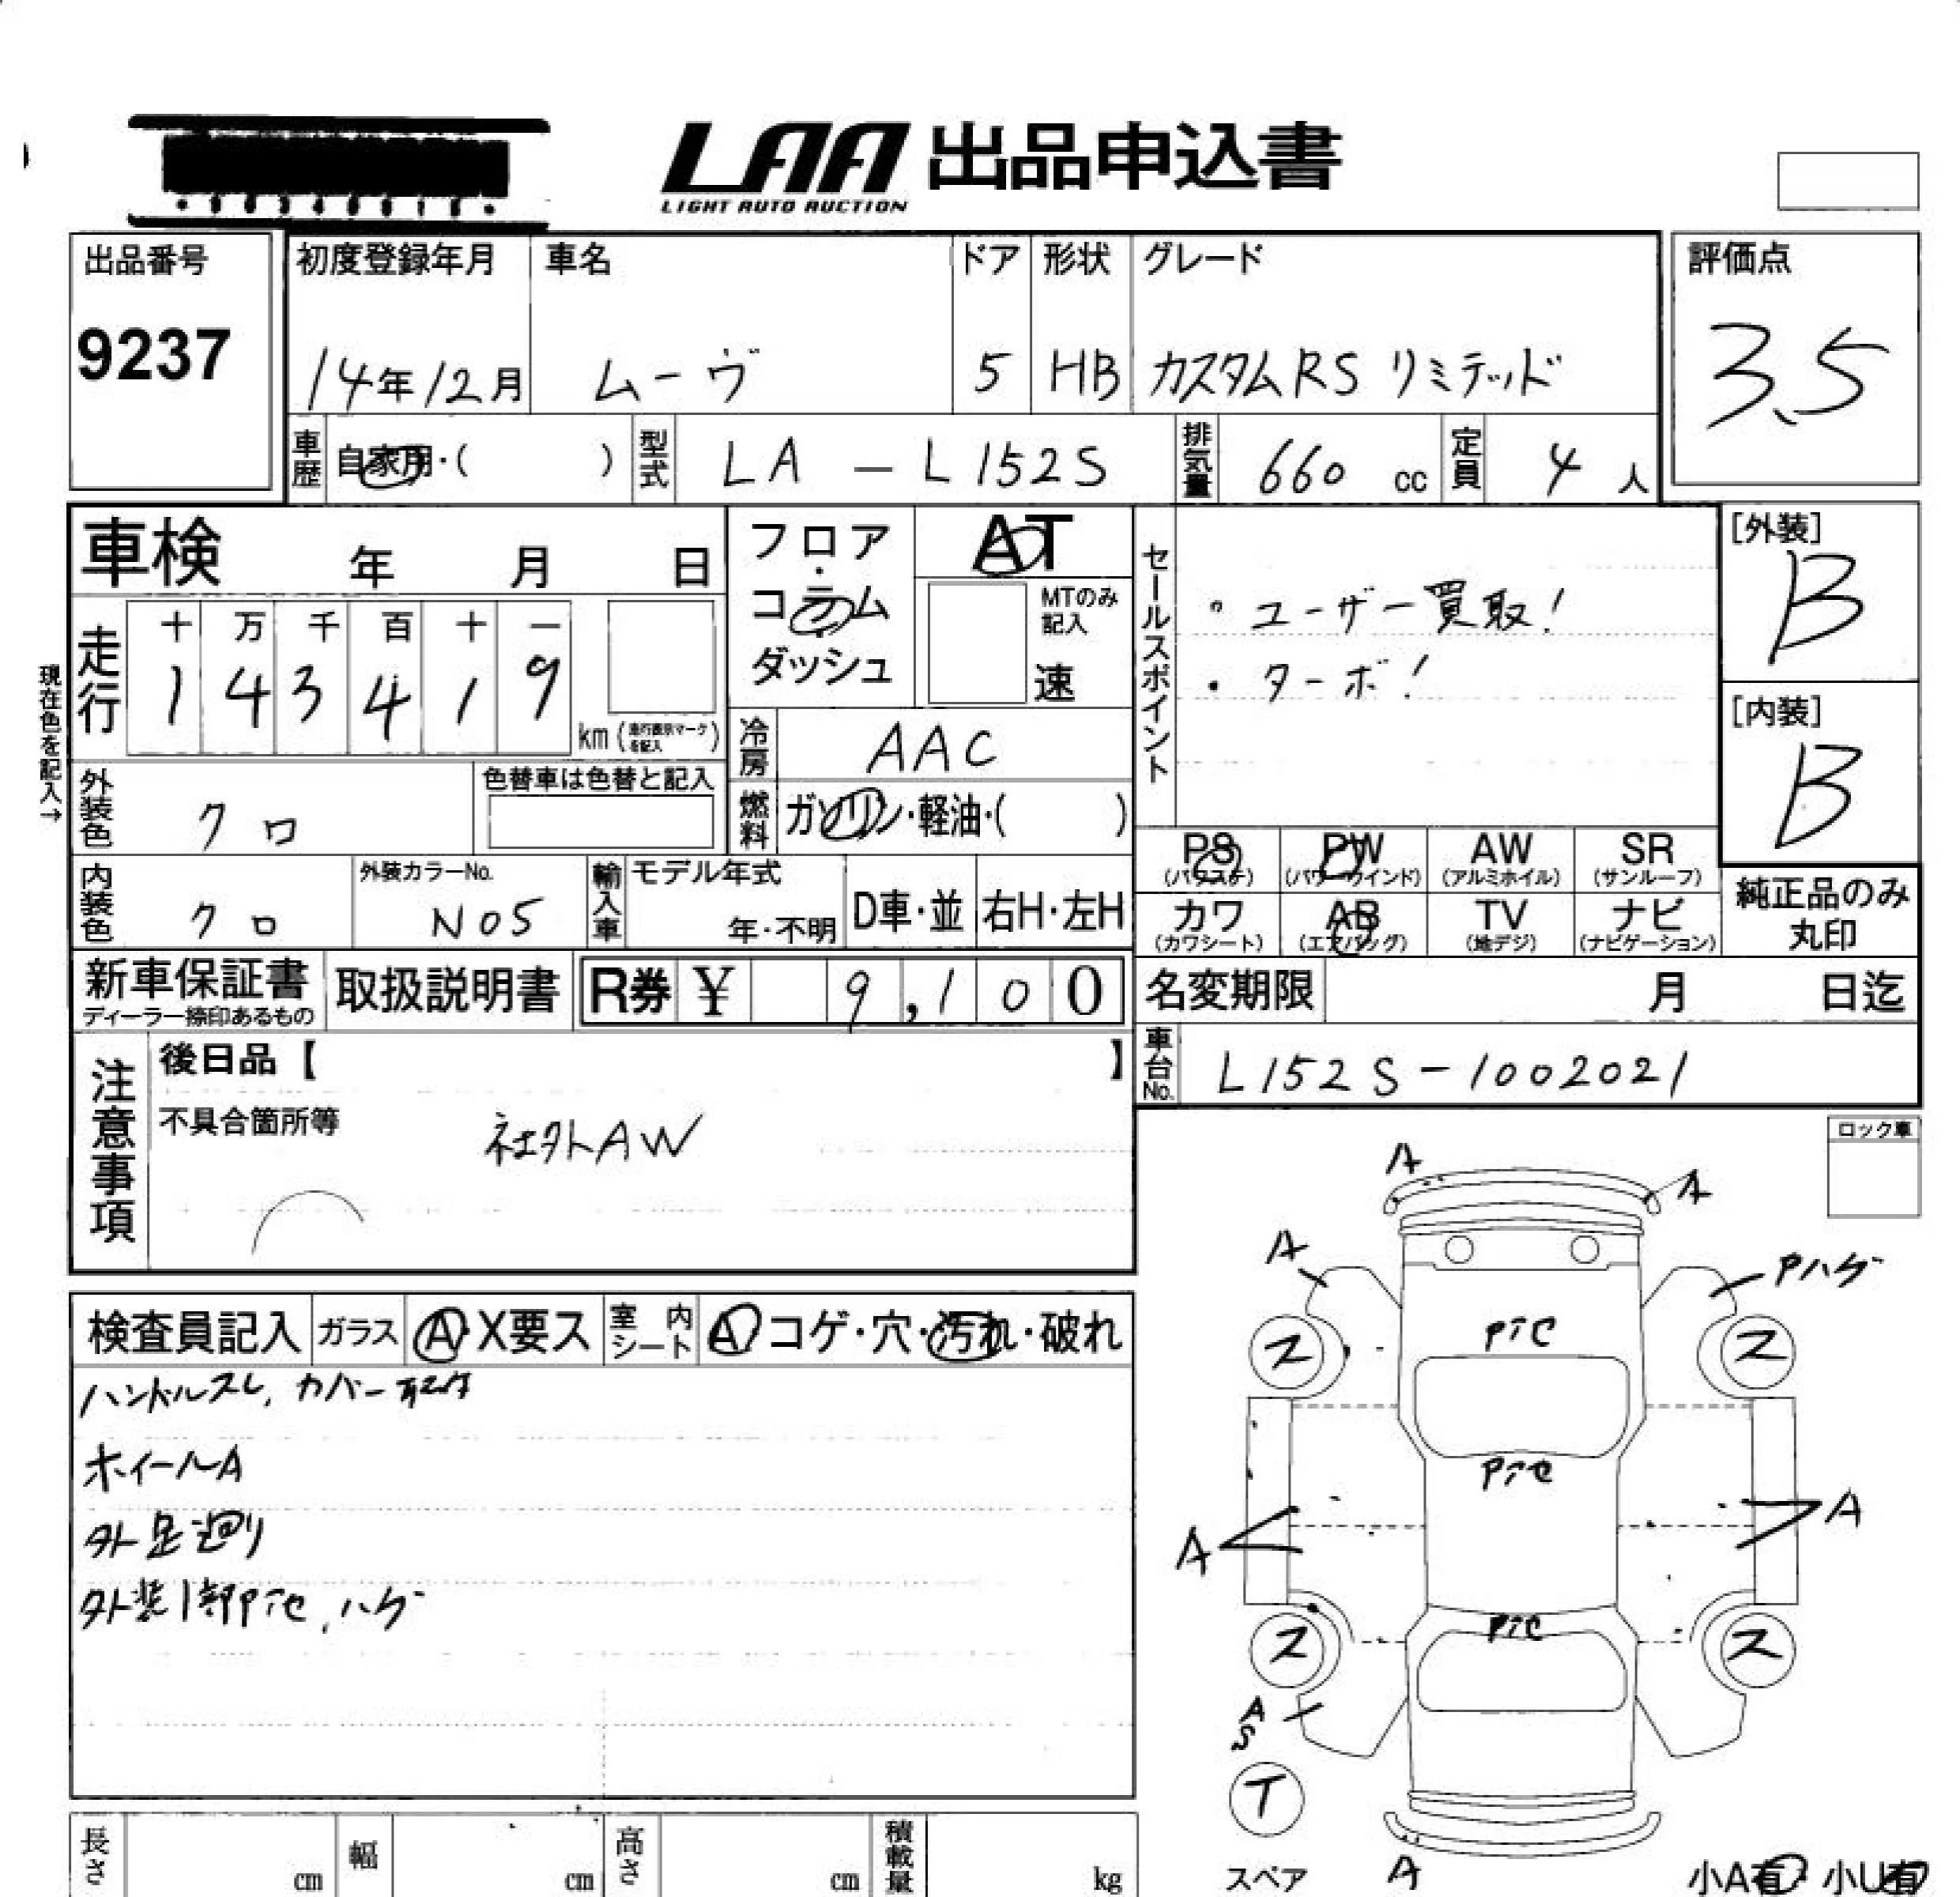 LAA 出品申込書
LIGHT AUTO AUCTION
出品番号
9237
初度登録年月
14年12月
車名
ムーヴ
ドア
5
形状
HB
グレード
カスタムRS リミテッド
評価点
3.5
車歴
自家用・( )
型式
LA - L152S
排気量
660 cc
定員
4 人
車検 年 月 日
フロア・コラム
ダッシュ
AT
MTのみ
記入
速
セールスポイント
・ユーザー買取!
・ターボ!
[外装]
B
[内装]
B
現在色を記入→
走行
十 万 千 百 十 一
1 4 3 4 1 9
km (走行表示マークを記入)
冷房
AAC
燃料
ガソリン・軽油・( )
外装色
クロ
色替車は色替と記入
内装色
クロ
外装カラーNo.
N05
輸入車
モデル年式
年・不明
D車・並
右H・左H
PS
(パワステ)
PW
(パワーウインド)
AW
(アルミホイル)
SR
(サンルーフ)
カワ
(カワシート)
AB
(エアバッグ)
TV
(地デジ)
ナビ
(ナビゲーション)
純正品のみ
丸印
新車保証書
ディーラー捺印あるもの
取扱説明書
R券 ¥ 9,100
名変期限 月 日迄
車台No.
L152S-1002021
注意事項
後日品【 】
不具合箇所等
社外AW
ロック車
検査員記入
ガラス
A・X要ス
室内シート
A・コゲ・穴・汚れ・破れ
ハンドルスレ, カバー取付
ホイールA
外足廻り
外装1部Pイセ, ハゲ
A
A
A
Pハゲ
ス
ス
Pイセ
Pイセ
A
A
Pイセ
ス
ス
A
S
T
スペア
A
小A有・小U有
長さ cm
幅 cm
高さ cm
積載量 kg